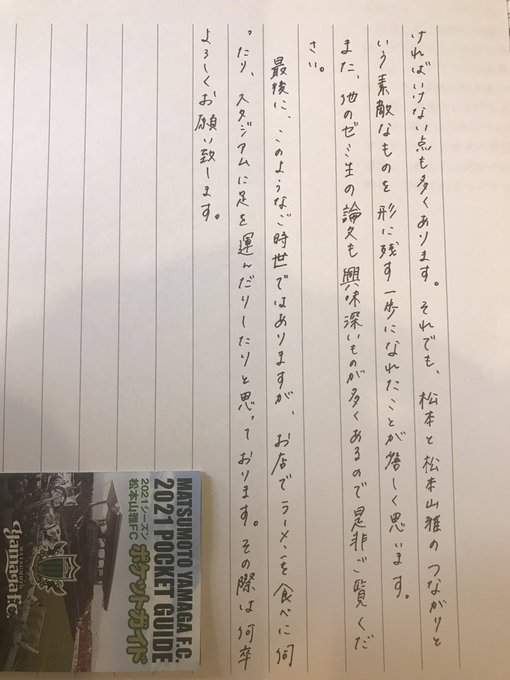 ければいけない点も多くあります。それでも、松本と松本山雅のつながりと
いう素敵なものを形に残す一歩になれたことが嬉しく思います。
また、他のゼミ生の論文も興味深いものが多くあるので是非ご覧くだ
さい。
最後に、このようなご時世ではありますが、お店でラーメンを食べに伺
ったり、スタジアムに足を運んだりしたりと思っております。その際は何卒
よろしくお願い致します。
MATSUMOTO YAMAGA F.C.
2021 POCKET GUIDE
2021シーズン
松本山雅FC
ポケットガイド
MATSUMOTO
Yamaga F.C.